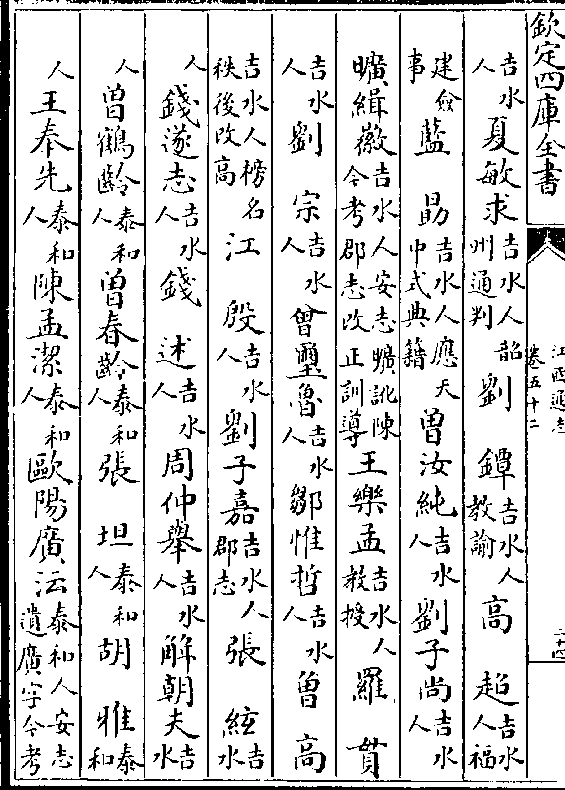 欽定四庫全書
江西通志
卷五十二
二十四
吉水人夏敏求吉水人韶州通判劉鐔吉水人教諭高超吉水人福
建僉事藍勗吉水人應天中式典籍曾汝純吉水人劉子尚吉水人
曠緝徽吉水人安志曠訛陳今考郡志改正訓導王樂孟吉水人教授羅貫
吉水人劉宗吉水人曾璽魯吉水人鄒惟哲吉水人曾高
吉水人榜名秩後改高江殷吉水人劉子嘉吉水人郡志張絃吉水
人錢遂志吉水人錢述吉水人周仲舉吉水人解朝夫吉水
人曾鶴齡泰和人曾春齡泰和人張坦泰和人胡雅泰和
人王奉先泰和人陳孟潔泰和人歐陽廣沄泰和人安志遺廣字今考